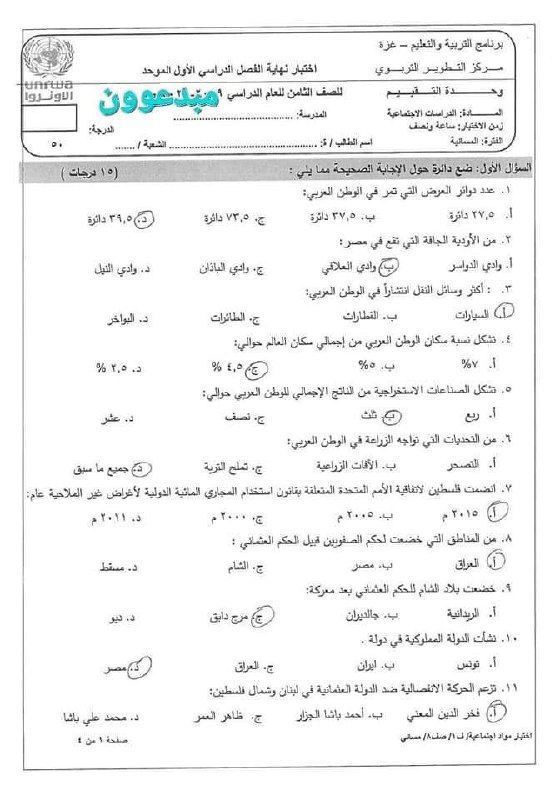 برنامج التربية والتعليم – غزة
مركز التطوير التربوي
وحدة التقييم
المادة: الدراسات الاجتماعية
زمن الاختبار: ساعة ونصف
الفترة: المسائية
اختبار نهاية الفصل الدراسي الأول الموحد
للصف الثامن للعام الدراسي
المدرسة:
اسم الطالب / ة: الشعبة /
unrwa
الأونروا
الدرجة:
٥٠
مبدعوون
السؤال الأول: ضع دائرة حول الإجابة الصحيحة مما يلي: (١٥ درجات)
١. عدد دوائر العرض التي تمر في الوطن العربي:
أ. ٢٧,٥ دائرة ب. ٣٧,٥ دائرة ج. ٧٣,٥ دائرة د. ٣٩,٥ دائرة
٢. من الأودية الجافة التي تقع في مصر:
أ. وادي الدواسر ب. وادي العلاقي ج. وادي الباذان د. وادي النيل
٣. : أكثر وسائل النقل انتشاراً في الوطن العربي:
أ. السيارات ب. القطارات ج. الطائرات د. البواخر
٤. تشكل نسبة سكان الوطن العربي من إجمالي سكان العالم حوالي:
أ. ٧% ب. ٥% ج. ٤,٥ % د. ٢,٥ %
٥. تشكل الصناعات الاستخراجية من الناتج الإجمالي للوطن العربي حوالي:
أ. ربع ب. ثلث ج. نصف د. عشر
٦. من التحديات التي تواجه الزراعة في الوطن العربي:
أ. التصحر ب. الآفات الزراعية ج. تملح التربة د. جميع ما سبق
٧. انضمت فلسطين لاتفاقية الأمم المتحدة المتعلقة بقانون استخدام المجاري المائية الدولية لأغراض غير الملاحية عام:
أ. ٢٠١٥ م ب. ٢٠٠٥ م ج. ٢٠٠٠ م د. ٢٠١١ م
٨. من المناطق التي خضعت لحكم الصفويين قبيل الحكم العثماني :
أ. العراق ب. مصر ج. الشام د. مسقط
٩. خضعت بلاد الشام للحكم العثماني بعد معركة:
أ. الريدانية ب. جالديران ج. مرج دابق د. ديو
١٠. نشأت الدولة المملوكية في دولة .
أ. تونس ب. ايران ج. العراق د. مصر
١١. تزعم الحركة الانفصالية ضد الدولة العثمانية في لبنان وشمال فلسطين:
أ. فخر الدين المعني ب. أحمد باشا الجزار ج. ظاهر العمر د. محمد علي باشا
اختبار مواد اجتماعية/ ف١/ صف٨/ مسائي صفحة ١ من ٤